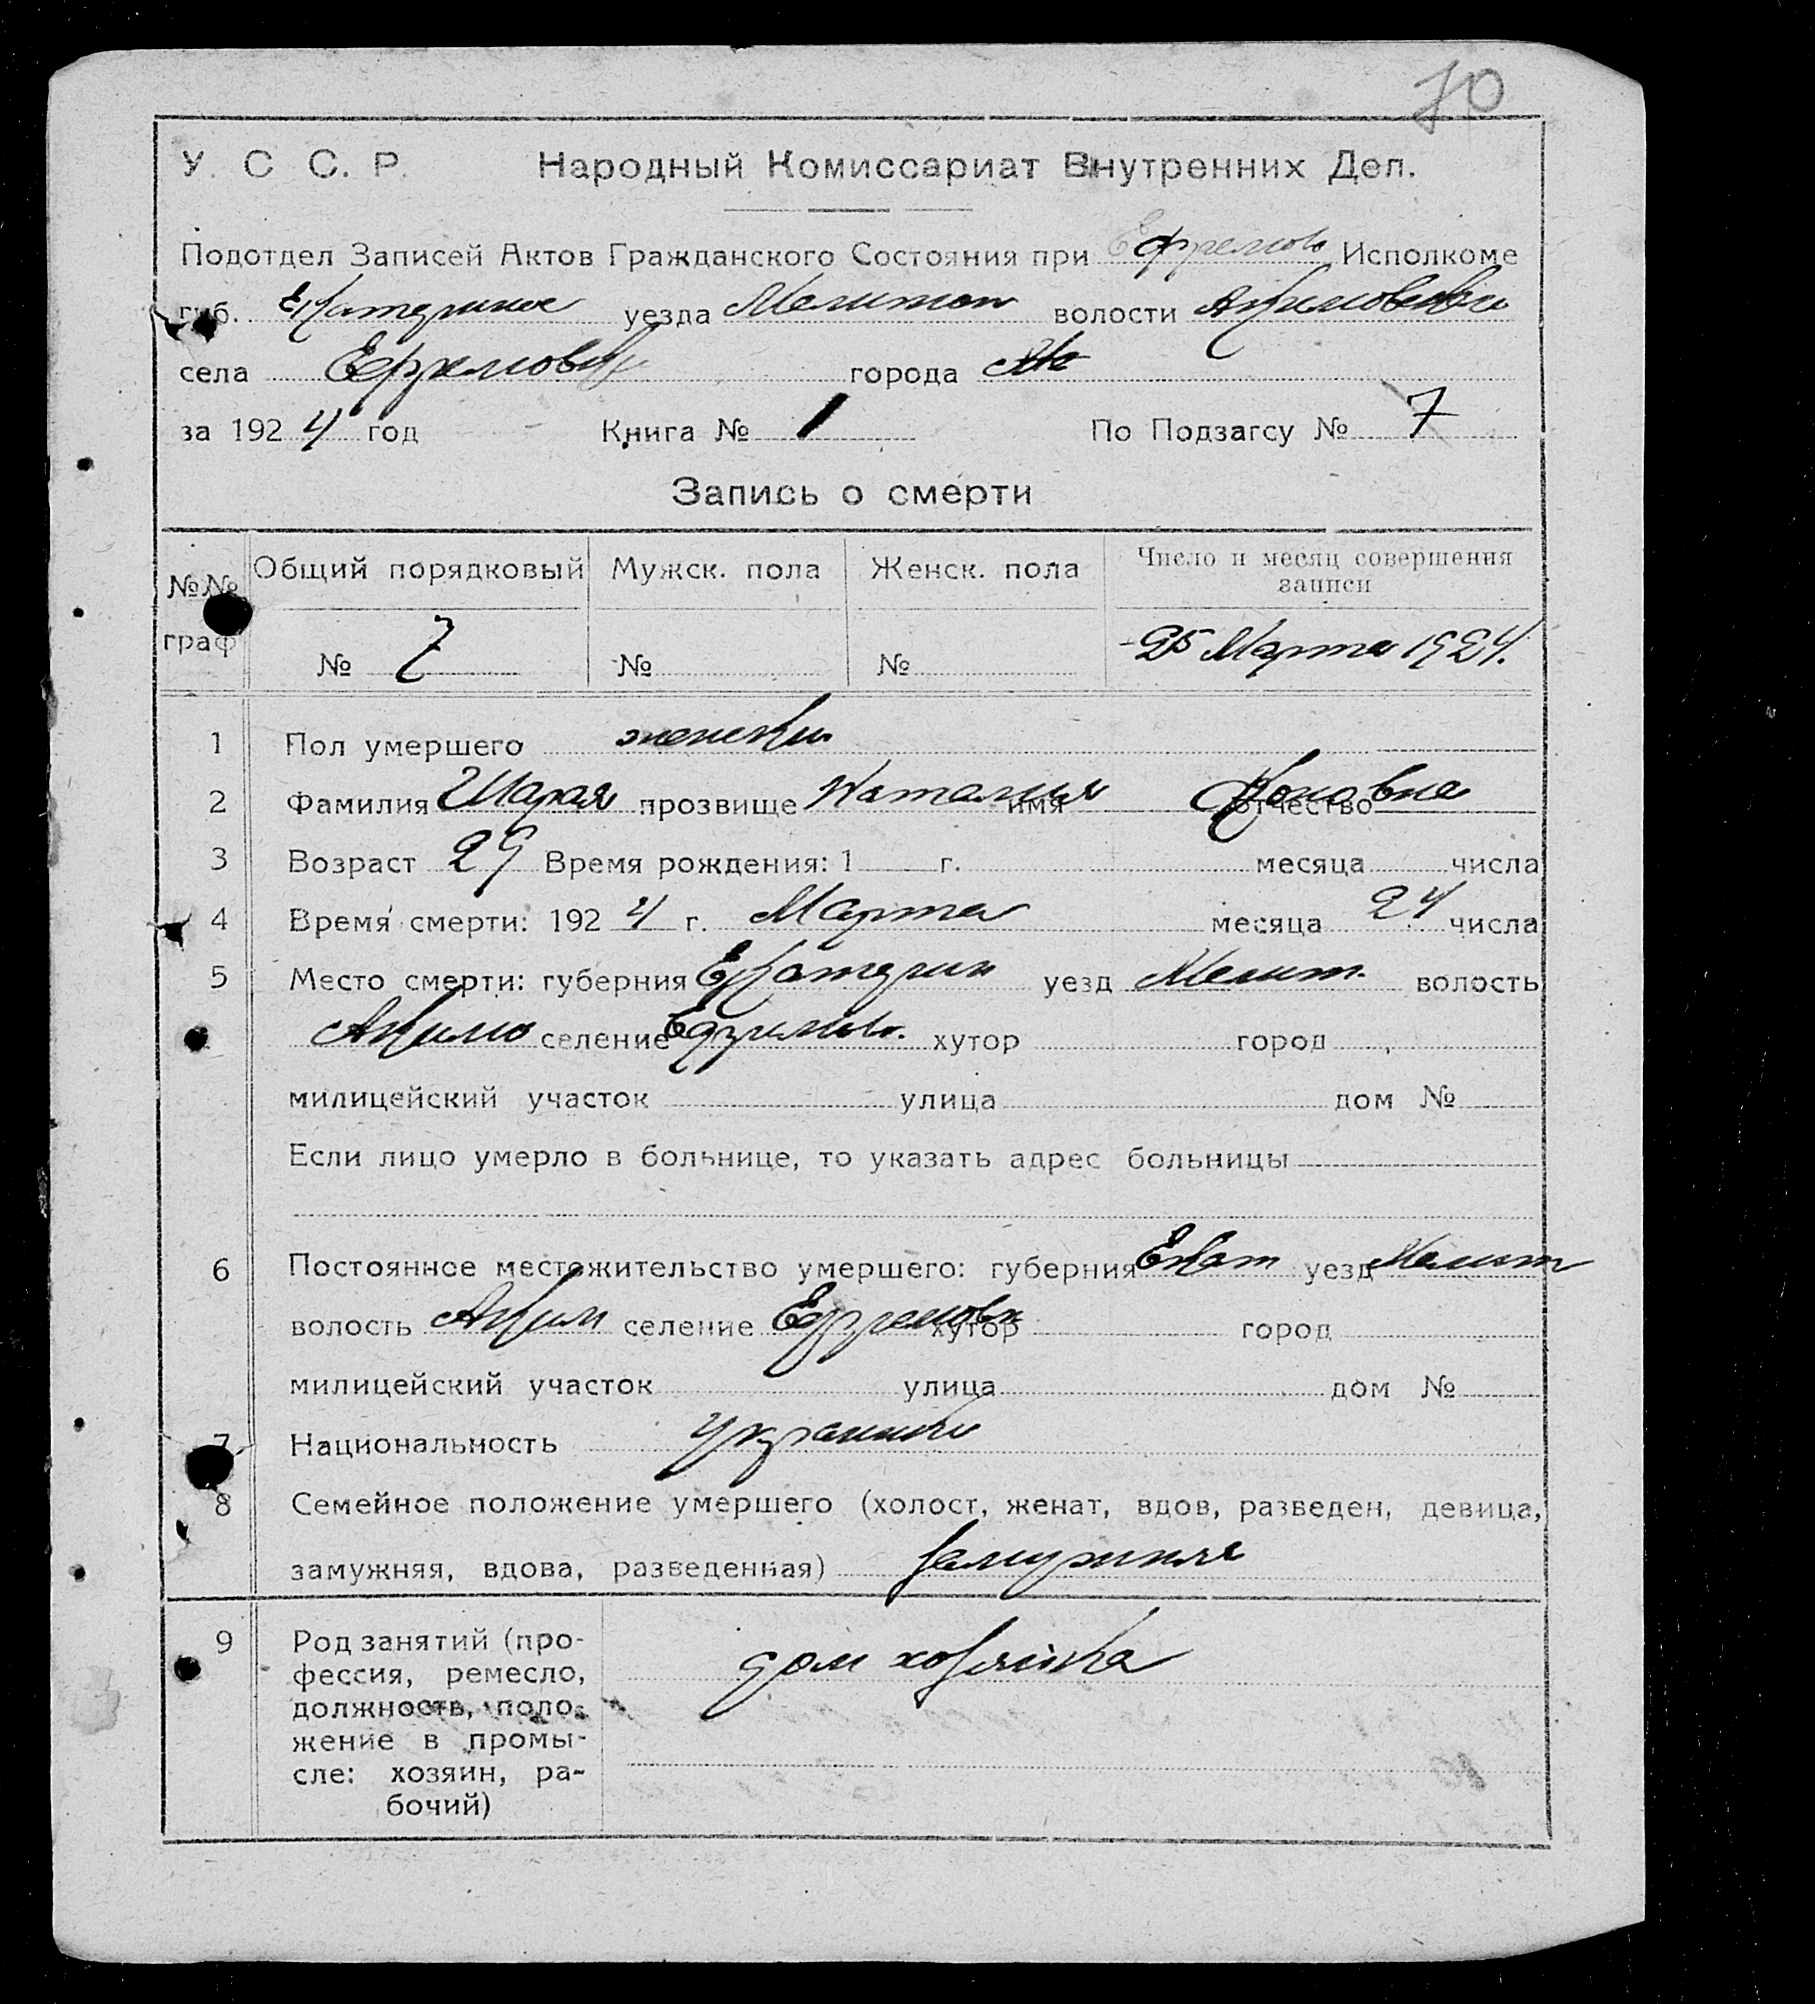 70
У. С. С. Р. Народный Комиссариат Внутренних Дел.
Подотдел Записей Актов Гражданского Состояния при Ефремов Исполкоме
губ. Екатеринос уезда Мелитоп волости Акимовской
села Ефремовк города
за 1924 год Книга № 1 По Подзагсу № 7
Запись о смерти
№№ граф Общий порядковый Мужск. пола Женск. пола Число и месяц совершения записи
№ 7 № № 25 Марта 1924.
1 Пол умершего женски
2 Фамилия Шарая прозвище Наталия имя отчество
3 Возраст 29 Время рождения: 1 г. месяца числа
4 Время смерти: 1924 г. Марта месяца 24 числа
5 Место смерти: губерния Екатерин уезд Мелит. волость
Акимо селение Ефремов. хутор город
милицейский участок улица дом №
Если лицо умерло в больнице, то указать адрес больницы
6 Постоянное местожительство умершего: губерния Екат уезд Мелит
волость Аким селение Ефремовк хутор город
милицейский участок улица дом №
7 Национальность
8 Семейное положение умершего (холост, женат, вдов, разведен, девица,
замужняя, вдова, разведенная) Замужняя
9 Род занятий (про-
фессия, ремесло, дом хозяйка
должность, поло-
жение в промы-
сле: хозяин, ра-
бочий)